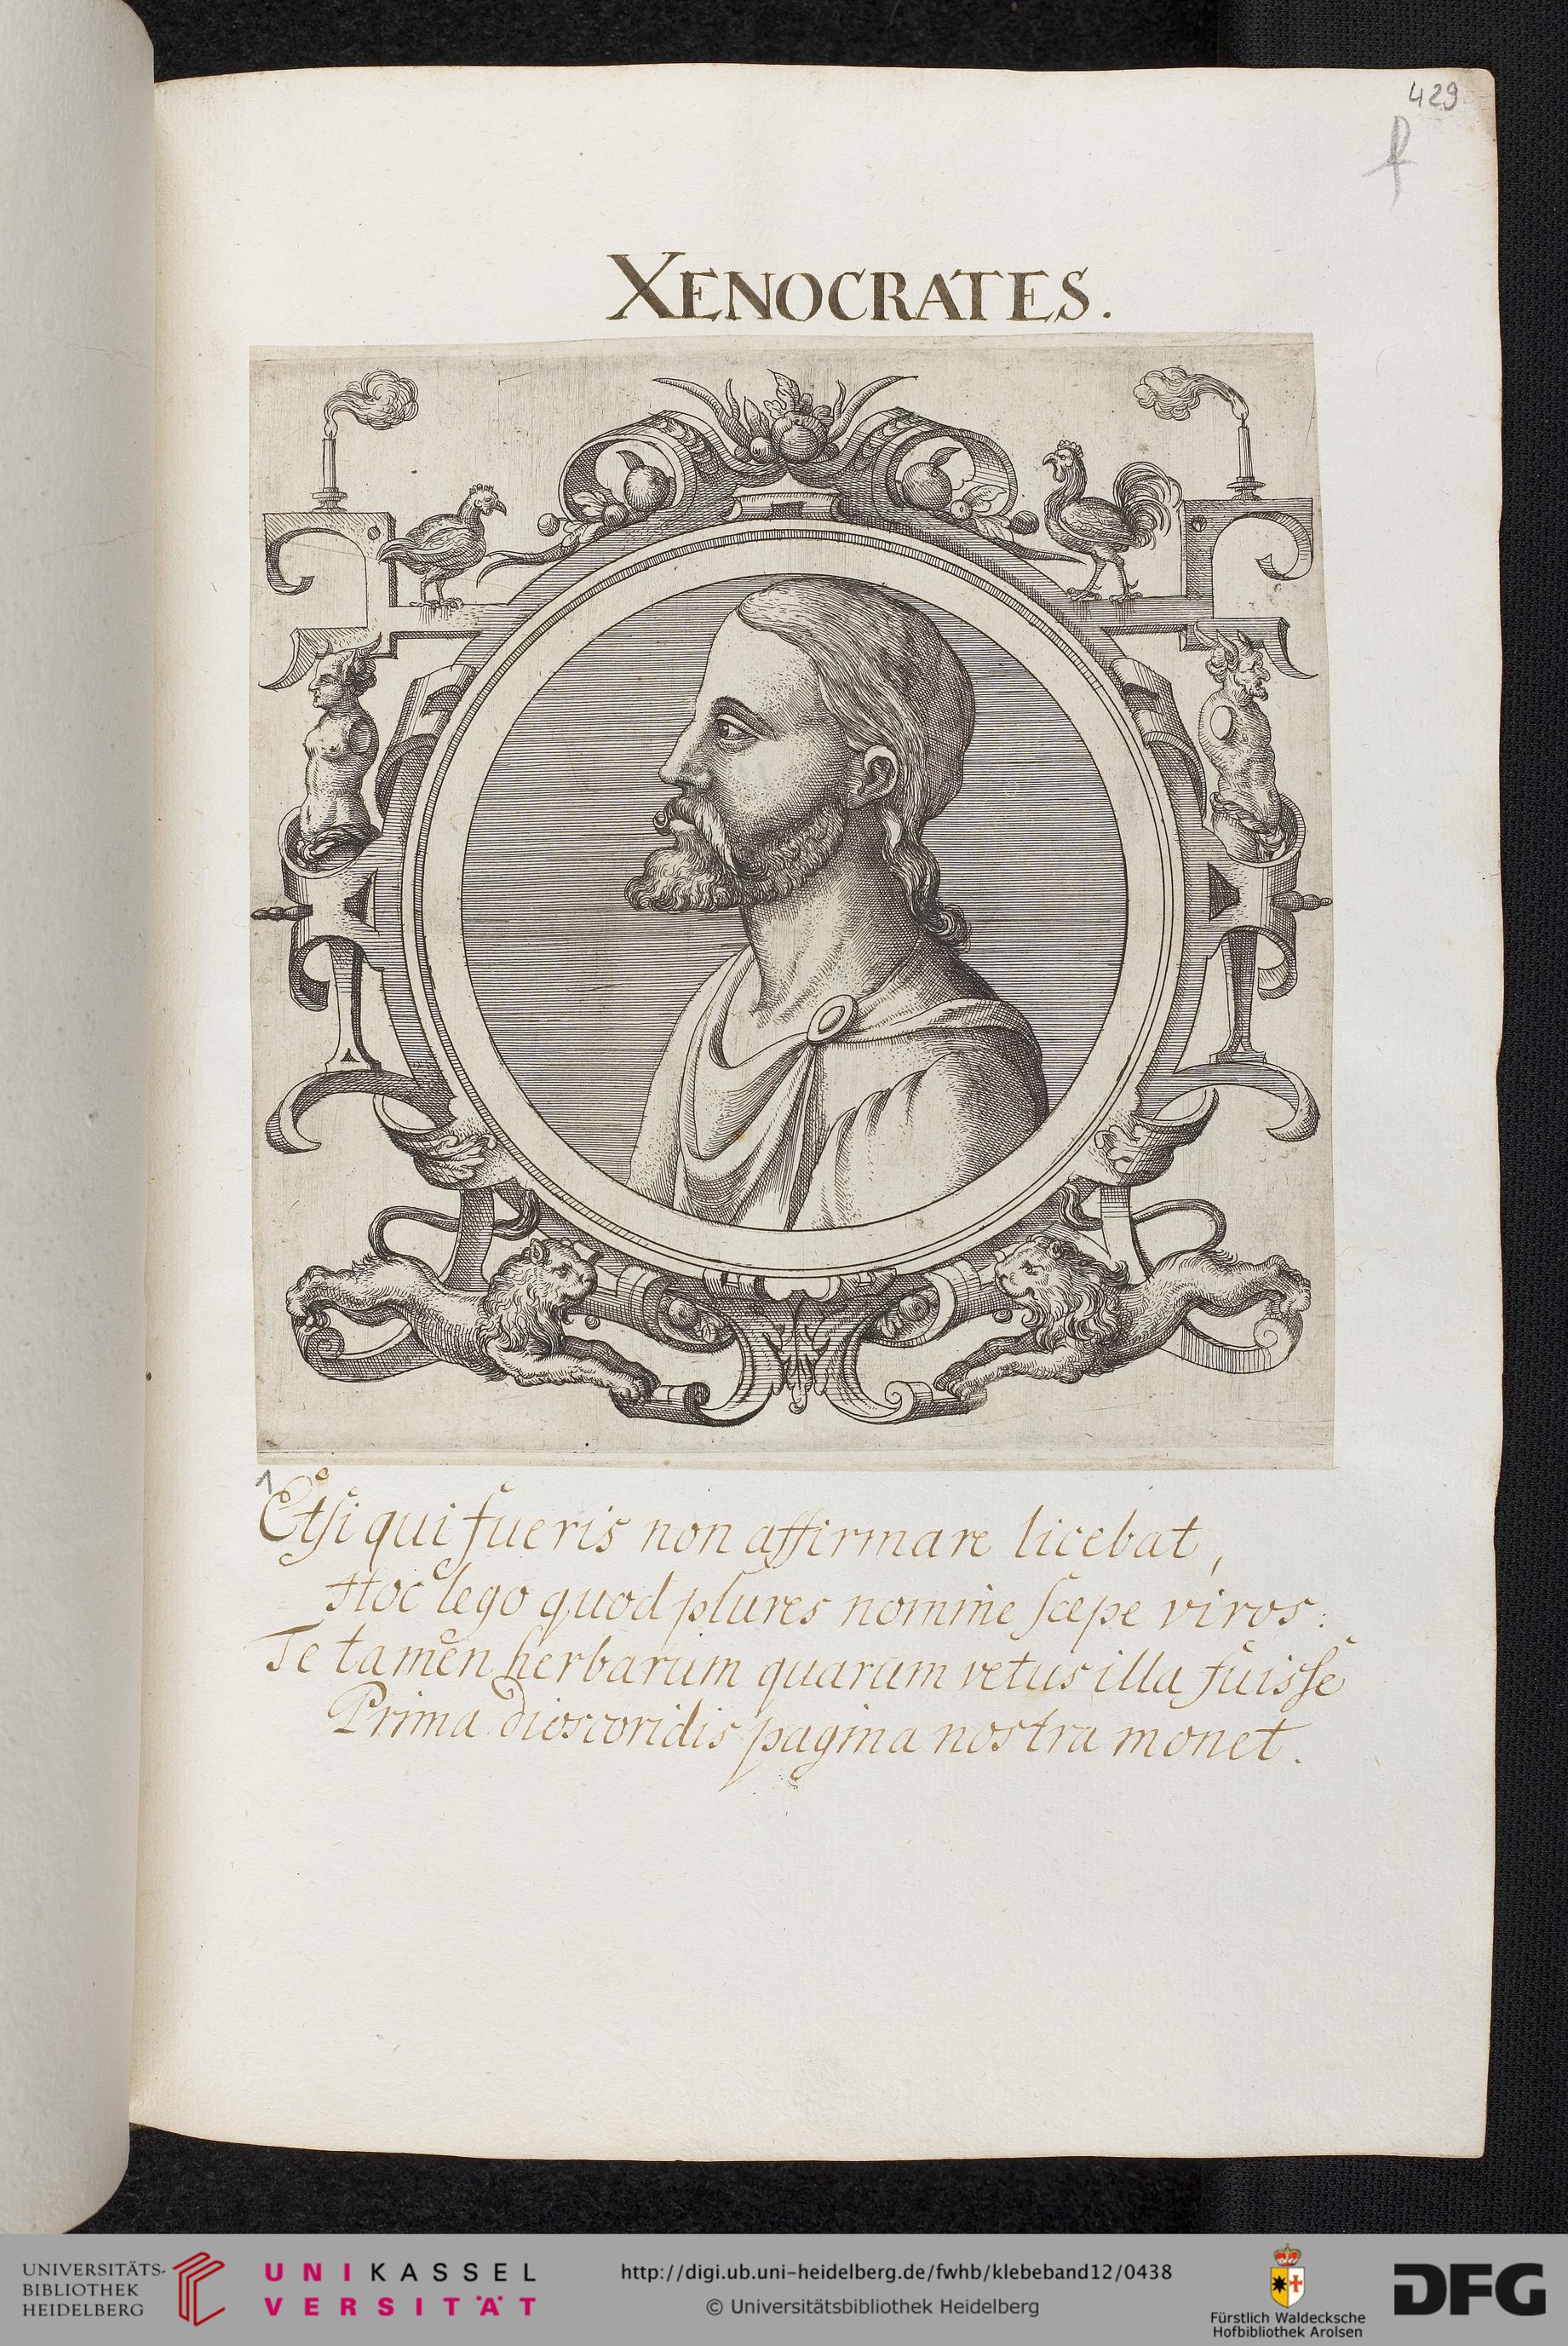 429
f
XENOCRATES.
1
Etsi qui fueris non affirmare licebat,
Hoc lego quod plures nomine sæpe viros:
Te tamen herbarum quarum vetus illa fuisse
Prima dioscoridis pagina nostra monet.
UNIVERSITÄTS-
BIBLIOTHEK
HEIDELBERG
UNIKASSEL
VERSITÄT
http://digi.ub.uni-heidelberg.de/fwhb/klebeband12/0438
© Universitätsbibliothek Heidelberg
Fürstlich Waldecksche
Hofbibliothek Arolsen
DFG